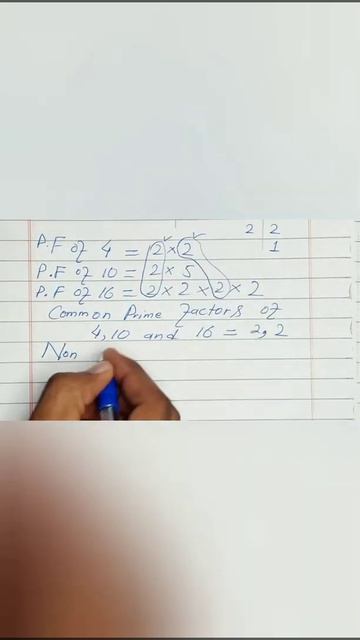 2 | 2
1
P.F of 4 = 2 × 2
P.F of 10 = 2 × 5
P.F of 16 = 2 × 2 × 2 × 2
Common Prime Factors of
4, 10 and 16 = 2, 2
Non